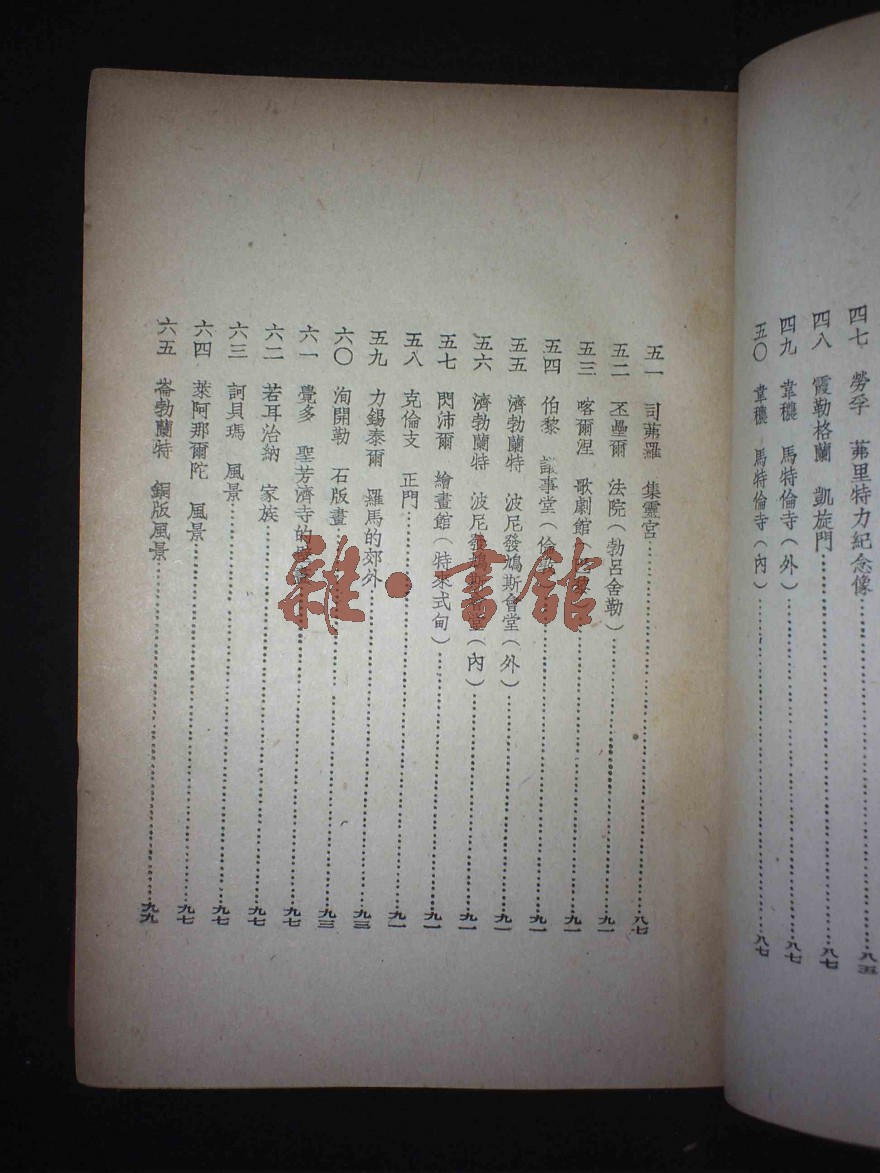 四七 勞孚 茀里特力紀念像……八五
四八 霞勒格蘭 凱旋門……八七
四九 韋穠 馬特倫寺（外）……八七
五〇 韋穠 馬特倫寺（內）……八七
五一 司茀羅 集靈宮……八七
五二 丕壘爾 法院（勃呂舍勒）……九一
五三 喀爾涅 歌劇館……九一
五四 伯黎 議事堂（倫敦）……九一
五五 濟勃蘭特 波尼發鳩斯會堂（外）……九一
五六 濟勃蘭特 波尼發鳩斯會堂（內）……九一
五七 閃沛爾 繪畫館（特來式甸）……九一
五八 克倫支 正門……九一
五九 力錫泰爾 羅馬的郊外……九三
六〇 洵開勒 石版畫……九三
六一 覺多 聖芳濟寺的壁畫……九七
六二 若耳治納 家族……九七
六三 訶貝瑪 風景……九七
六四 萊阿那爾陀 風景……九七
六五 崙勃蘭特 銅版風景……九九
雜·書館